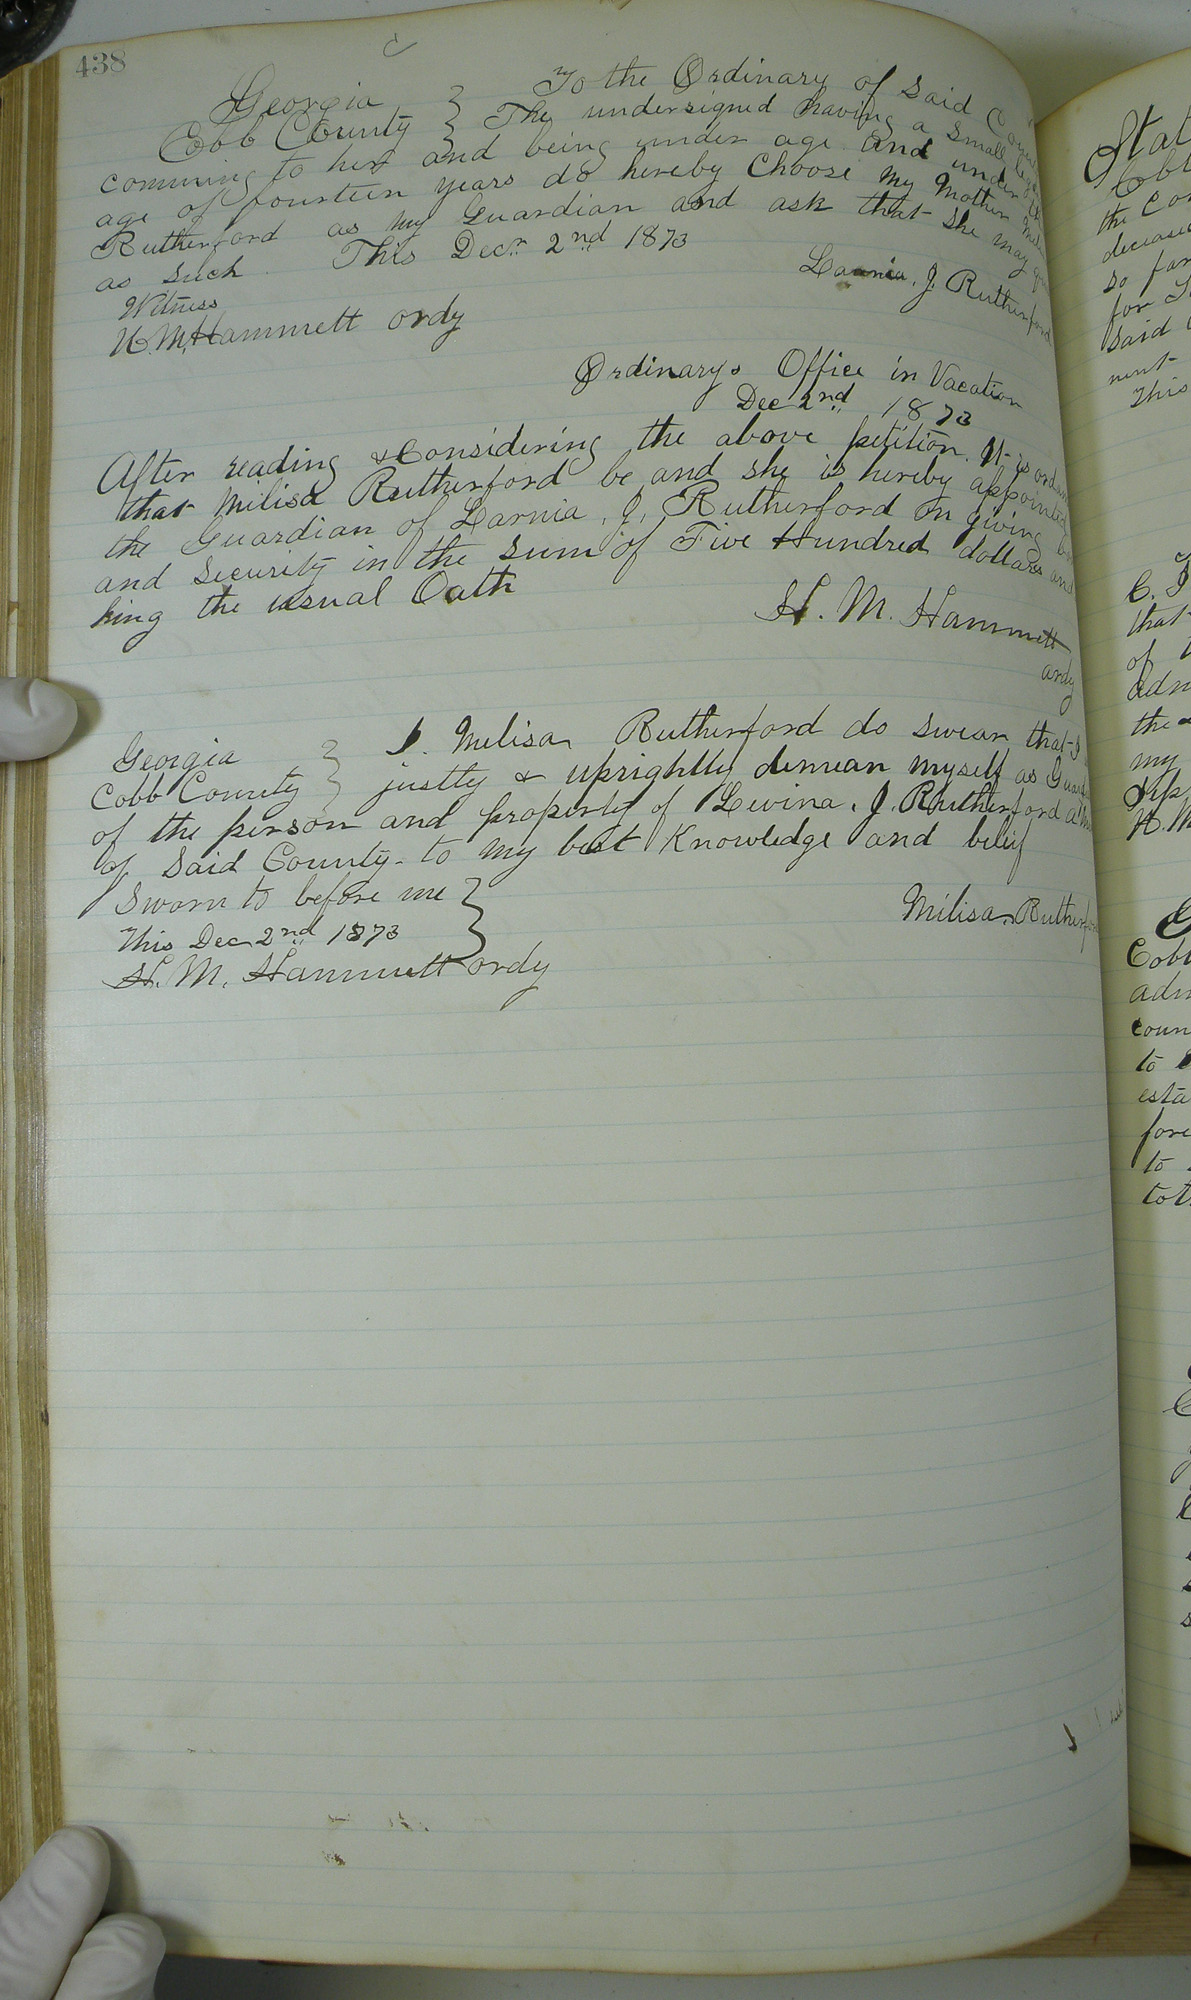 438
Georgia } To the Ordinary of Said
Cobb County } The undersigned having a Small
comming to her and being under age and under
age of fourteen years do hereby Choose my Mother
Rutherford as my Guardian and ask that she may
as such This Decr 2nd 1873
Larnia. J. Rutherford
Witness
H. M. Hammett ordy
Ordinarys Office in Vacation
Dec 2nd 1873
After reading & Considering the above petition. It is
that Milisa Rutherford be and she is hereby appointed
the Guardian of Larnia. J. Rutherford on giving
and Security in the Sum of Five Hundred dollars and
king the usual Oath
H. M. Hammett
ordy
Georgia } I. Milisa Rutherford do swear that I
Cobb County } justly & uprightly demean myself as
of the person and property of Levina. J. Rutherford a
of Said County to my best Knowledge and belief
Sworn to before me }
Milisa Rutherfor
This Dec 2nd 1873
H. M. Hammett ordy
Stat
Cobb
the Con
decease
so far
for
Said
ment
This
C.
that
of
adm
the
my
H. M
Cobb
adm
coun
to
esta
fore
to
tot